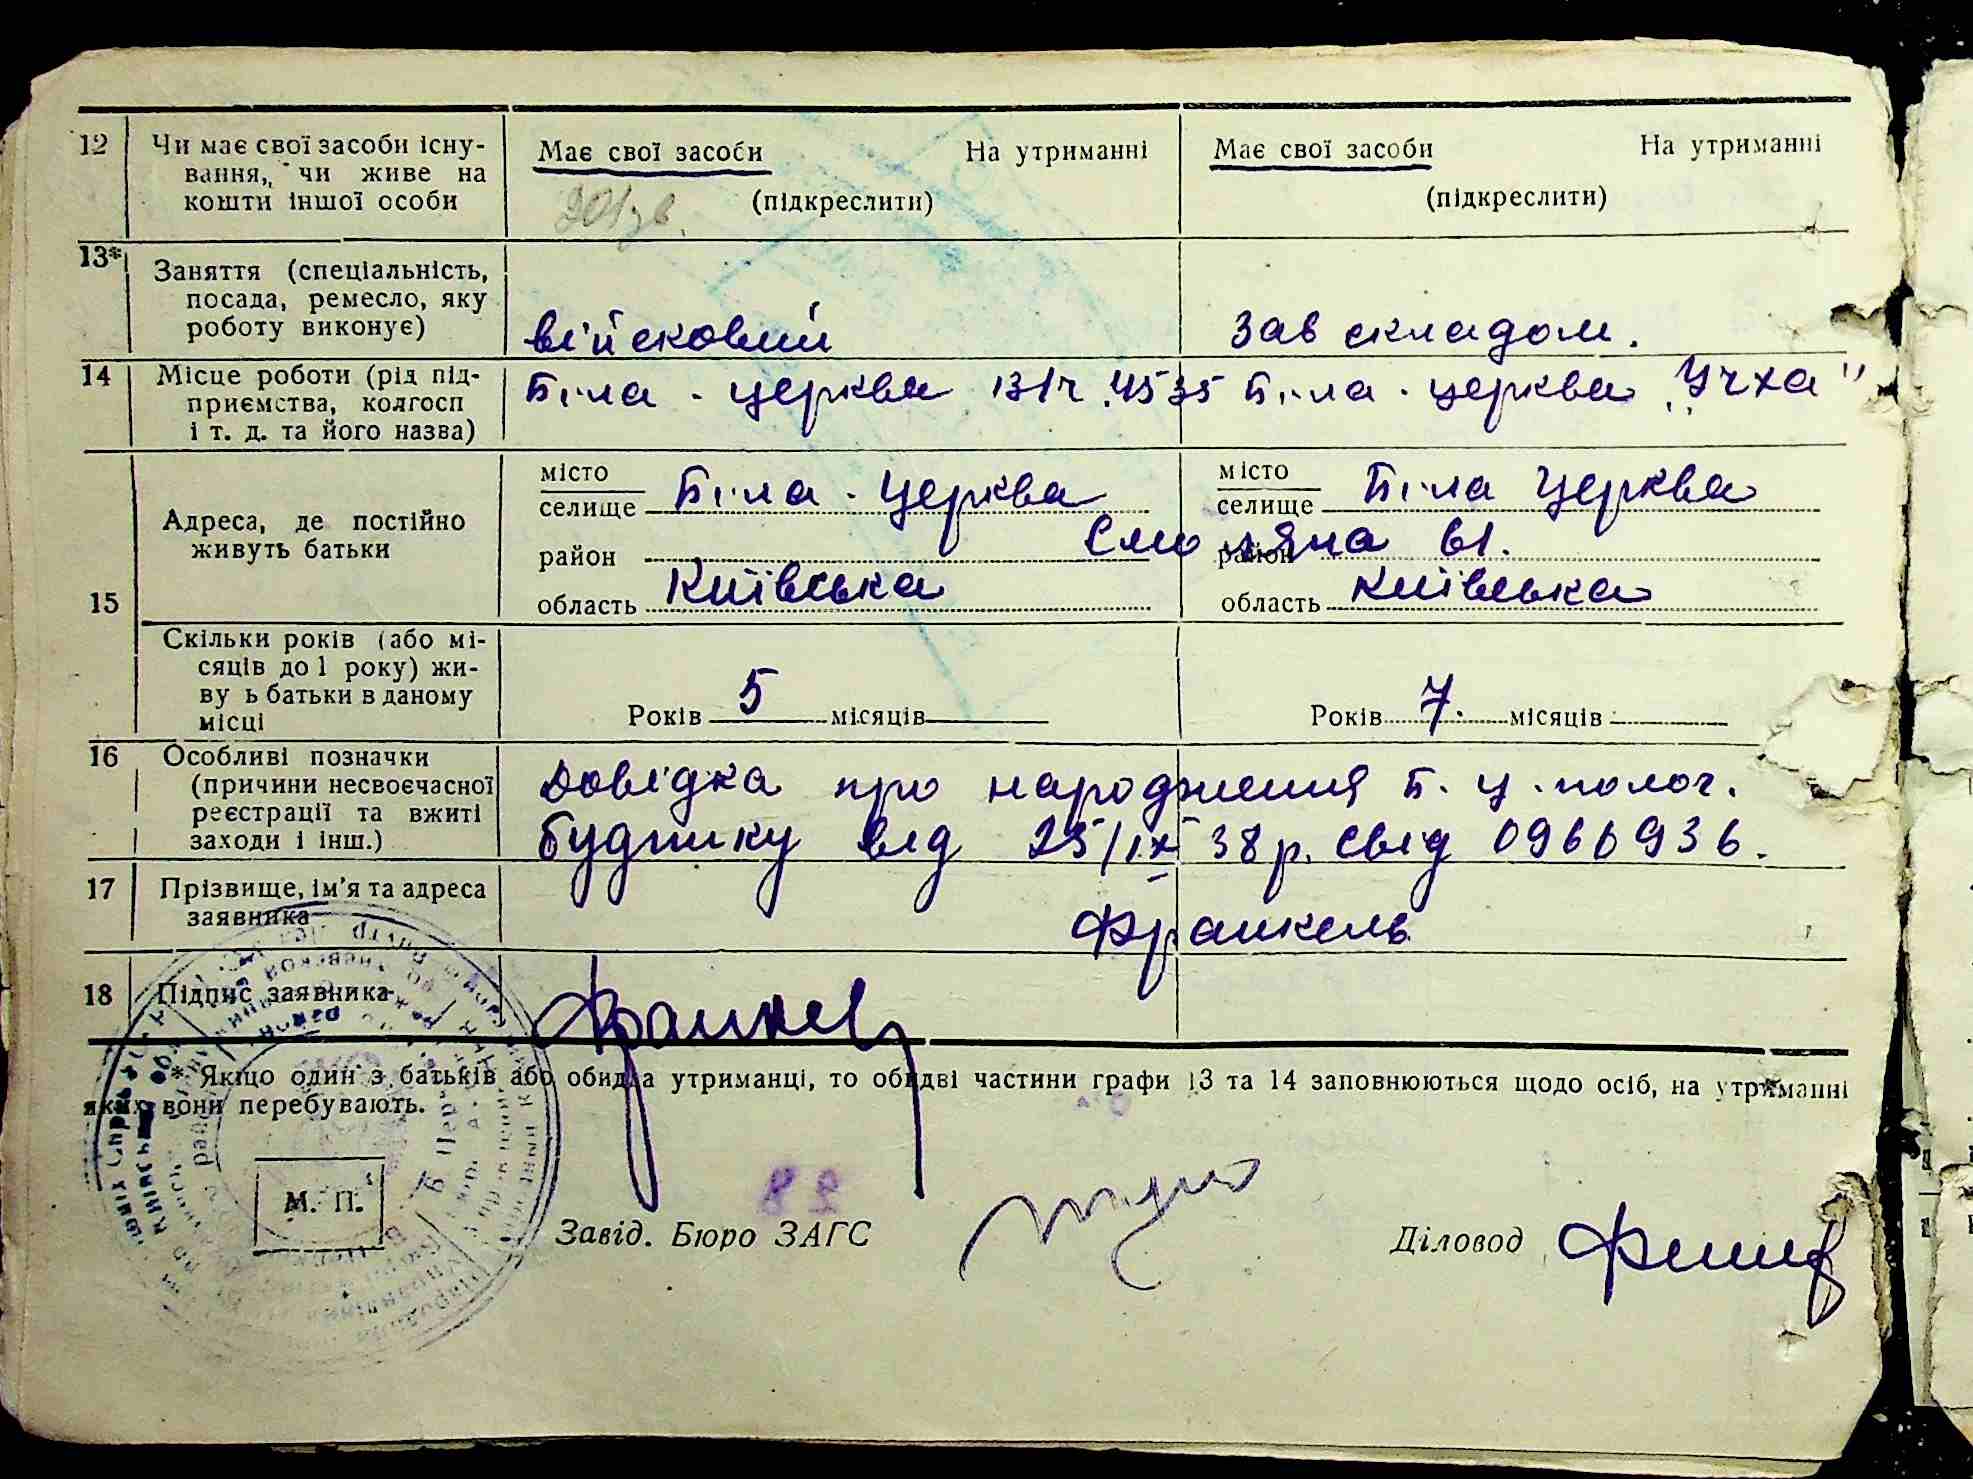 12 Чи має свої засоби існу-
вання, чи живе на
кошти іншої особи
Має свої засоби На утриманні
(підкреслити)
Має свої засоби На утриманні
(підкреслити)
13* Заняття (спеціальність,
посада, ремесло, яку
роботу виконує)
військовий
Зав складом.
14 Місце роботи (рід під-
приємства, колгосп
і т. д. та його назва)
Біла - церква В/ч 4535
Біла - церква „Учха"
15 Адреса, де постійно
живуть батьки
місто
селище Біла - церква
район
область Київська
місто
селище Біла Церква
район 61.
область Київська
Скільки років (або мі-
сяців до 1 року) жи-
ву ь батьки в даному
місці
Років 5 місяців
Років 7. місяців
16 Особливі позначки
(причини несвоєчасної
реєстрації та вжиті
заходи і інш.)
Довідка про народження Б. ц. полог.
будинку від 25/IX 38 р. свід 0966936.
17 Прізвище, ім'я та адреса
заявника
Франкель
18 Підпис заявника
* Якщо один з батьків або обидва утриманці, то обидві частини графи 13 та 14 заповнюються щодо осіб, на утриманні
яких вони перебувають.
М. П.
Завід. Бюро ЗАГС
Діловод